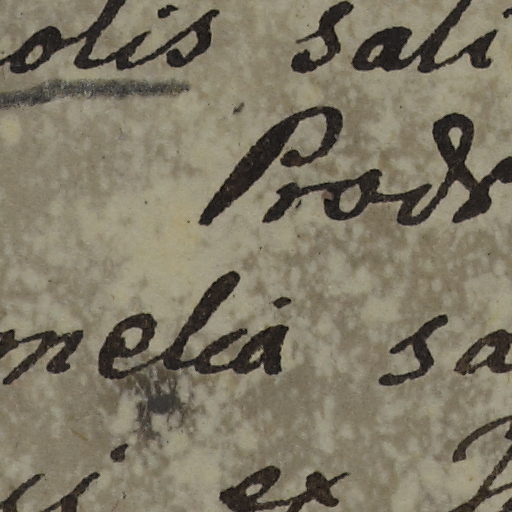 olis sali
Prodr
melia sa
ii ex